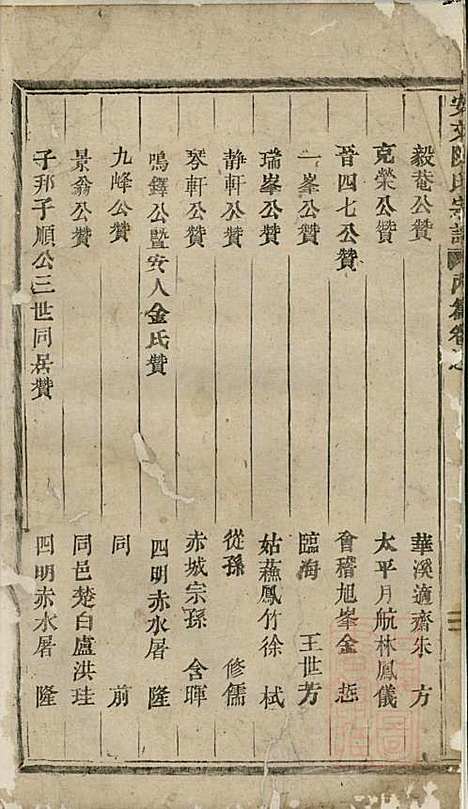 安文陳氏宗譜 內篇卷之
毅菴公贊 華溪適齋朱方
克榮公贊 太平月航林鳳儀
晉四七公贊 會稽旭峯金𢙢
一峯公贊 臨海王世芳
瑞峯公贊 姑蘇鳳竹徐栻
靜軒公贊 從孫修儒
琴軒公贊 赤城宗孫含暉
鳴鐸公暨安人金氏贊 四明赤水屠隆
九峰公贊 同前
景翁公贊 同邑楚白盧洪珪
子邦子順公三世同居贊 四明赤水屠隆